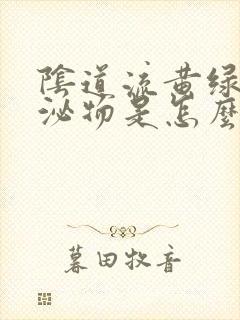 陰道流黃綠
泌物是怎麼
暮田牧音